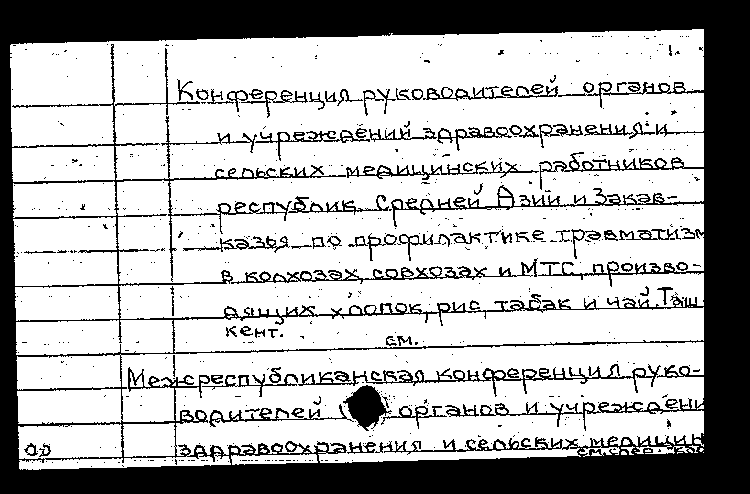 1.
Конференция руководителей органов
и учреждений здравоохранения и
сельских медицинских работников
республик Средней Азии и Закав-
казья по профилактике травматизм
в колхозах, совхозах и МТС, произво-
дящих хлопок, рис, табак и чай. Таш
кент.
см.
Межреспубликанская конференция руко-
водителей ( органов и учреждени
здравоохранения и сельских медицин
см. след.